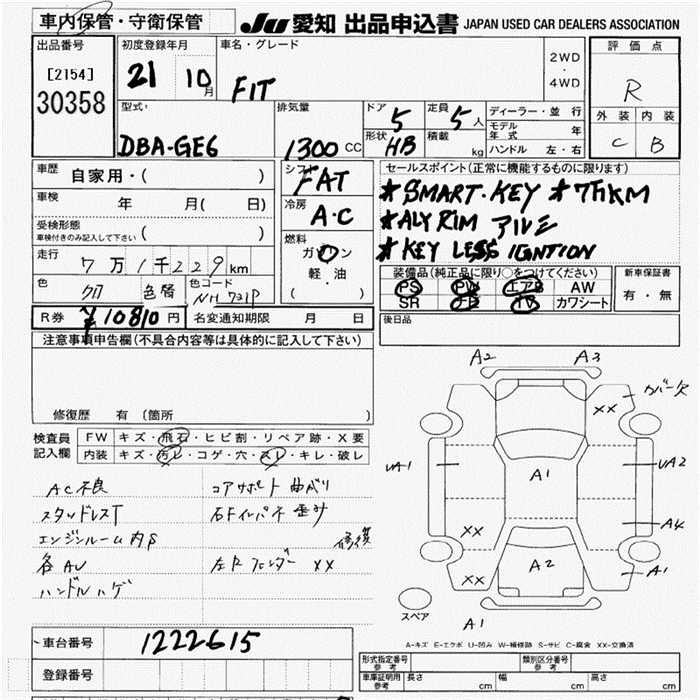 車内保管・守衛保管
JU 愛知 出品申込書 JAPAN USED CAR DEALERS ASSOCIATION
出品番号
[2154]
30358
初度登録年月
21 10月
車名・グレード
FIT
2WD
・
4WD
評価点
R
外装 内装
C B
型式:
DBA-GE6
排気量
1300 CC
ドア 5
定員 5人
形状 HB
積載 kg
ディーラー・並行
モデル年式 年
ハンドル 左・右
車歴 自家用・( )
車検 年 月( 日)
受検形態
車検付きのみ記入して下さい ( )
走行 7万1千229km
色
色替
色コード
NH731P
R券 ¥10810円
名変通知期限 月 日
シフト
FAT
冷房
A・C
燃料
ガソリン
軽・油
( )
セールスポイント(正常に機能するものに限ります)
★SMART.KEY ★7万KM
★ALY RIM アルミ
★KEY LESS IGNTION
装備品(純正品に限り○をつけてください)
PS PW エアB AW
SR TV カワシート
新車保証書
有・無
後日品
注意事項申告欄(不具合内容等は具体的に記入して下さい)
修復歴 有 〔箇所
検査員記入欄
FW キズ・飛石・ヒビ割・リペア跡・X要
内装 キズ・汚レ・コゲ・穴・スレ・キレ・破レ
AC不良
スタッドレスT
エンジンルーム内P
各AU
ハンドルハゲ
コアサポート曲がり
右Fインパネ歪み
修復
左Rフェンダー XX
A2 A3
カバー欠
XX
UA1 A1 UA2
XX A4
XX A2 A1
スペア
A1
A-キズ E-エクボ U-凹み W-補修跡 S-サビ C-腐食 XX-交換済
車台番号 1222615
登録番号
形式指定番号
参考
類別区分番号
参考
車庫証明用
参考
長さ cm 幅 cm 高さ cm